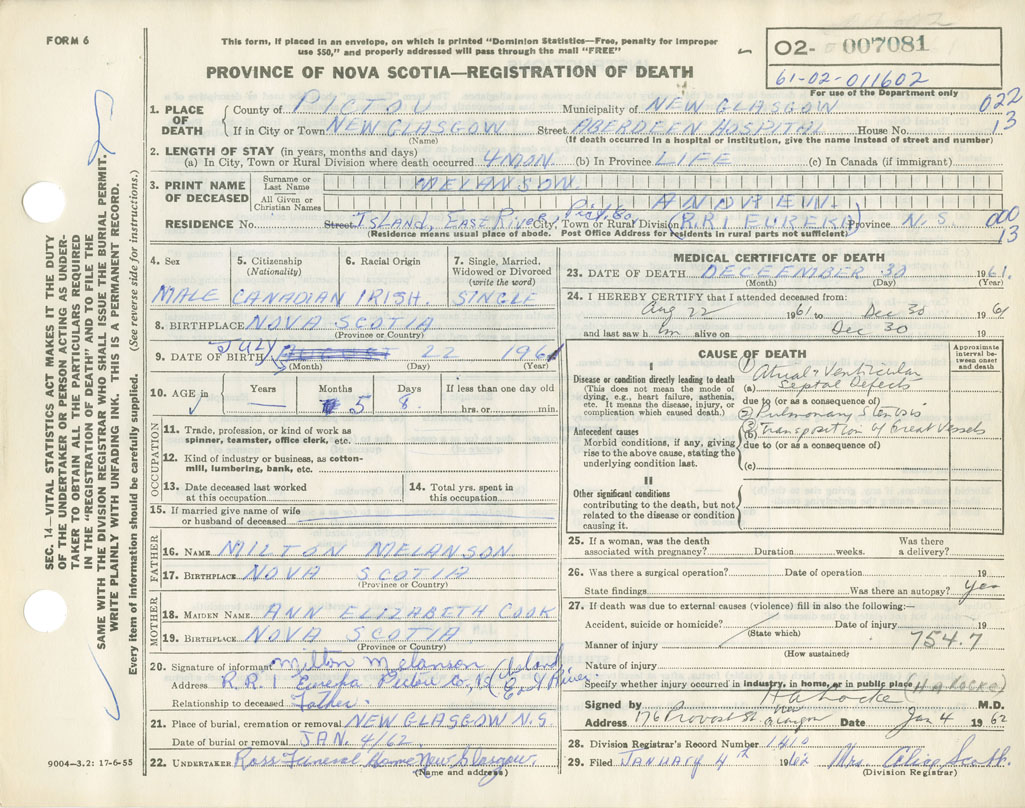 FORM 6
This form, if placed in an envelope, on which is printed "Dominion Statistics—Free, penalty for improper
use $50," and properly addressed will pass through the mail "FREE"
PROVINCE OF NOVA SCOTIA—REGISTRATION OF DEATH
02- 007081
61-02-011602
For use of the Department only
1. PLACE OF DEATH
County of PICTOU Municipality of NEW GLASGOW 022
If in City or Town NEW GLASGOW Street ABERDEEN HOSPITAL House No. 13
(Name) (If death occurred in a hospital or institution, give the name instead of street and number)
2. LENGTH OF STAY (in years, months and days)
(a) In City, Town or Rural Division where death occurred 4 MON. (b) In Province LIFE (c) In Canada (if immigrant)
3. PRINT NAME OF DECEASED
Surname or Last Name MELANSON
All Given or Christian Names ANDREW
RESIDENCE No. Street Island, East River, Pict. Co. City, Town or Rural Division (R.R.1 EUREKA) Province N.S. 000
(Residence means usual place of abode. Post Office Address for residents in rural parts not sufficient) 13
4. Sex
MALE
5. Citizenship (Nationality)
CANADIAN
6. Racial Origin
IRISH.
7. Single, Married, Widowed or Divorced (write the word)
SINGLE
8. BIRTHPLACE NOVA SCOTIA
(Province or Country)
9. DATE OF BIRTH JULY AUGUST 22 1961
(Month) (Day) (Year)
10. AGE
Years Months Days If less than one day old
5 8 hrs. or min.
OCCUPATION
11. Trade, profession, or kind of work as spinner, teamster, office clerk, etc.
12. Kind of industry or business, as cotton-mill, lumbering, bank, etc.
13. Date deceased last worked at this occupation
14. Total yrs. spent in this occupation
15. If married give name of wife or husband of deceased
FATHER
16. NAME MILTON MELANSON
17. BIRTHPLACE NOVA SCOTIA
(Province or Country)
MOTHER
18. MAIDEN NAME ANN ELIZABETH COOK
19. BIRTHPLACE NOVA SCOTIA
(Province or Country)
20. Signature of informant Milton Melanson
Address R.R.1 Eureka Pictou Co., N.S. (Island E. River.
Relationship to deceased Father.
21. Place of burial, cremation or removal NEW GLASGOW N.S.
Date of burial or removal JAN. 4/62
22. UNDERTAKER Ross Funeral Home New Glasgow.
(Name and address)
9004—3.2: 17-6-55
MEDICAL CERTIFICATE OF DEATH
23. DATE OF DEATH DECEEMBER 30 1961.
(Month) (Day) (Year)
24. I HEREBY CERTIFY that I attended deceased from:
Aug 22 1961 to Dec 30 1961
and last saw him alive on Dec 30 19
CAUSE OF DEATH
Approximate interval between onset and death
I
Disease or condition directly leading to death
(This does not mean the mode of dying, e.g., heart failure, asthenia, etc. It means the disease, injury, or complication which caused death.)
(a) ① Atrial & Ventricular Septal Defects
due to (or as a consequence of)
② Pulmonary Stenosis
Antecedent causes
Morbid conditions, if any, giving rise to the above cause, stating the underlying condition last.
(b) ③ Transposition of Great Vessels
due to (or as a consequence of)
(c)
II
Other significant conditions
contributing to the death, but not related to the disease or condition causing it.
25. If a woman, was the death associated with pregnancy? Duration weeks. Was there a delivery?
26. Was there a surgical operation? Date of operation 19
State findings Was there an autopsy? Yes
27. If death was due to external causes (violence) fill in also the following:—
Accident, suicide or homicide? Date of injury 19
(State which)
Manner of injury 754.7
(How sustained)
Nature of injury
Specify whether injury occurred in industry, in home, or in public place (H A LOCKE)
Signed by H A Locke M.D.
Address 176 Provost St. New Glasgow Date Jan 4 1962
28. Division Registrar's Record Number 1410
29. Filed JANUARY 4th 1962 Mrs. Alice Scott.
(Division Registrar)
SEC. 14—VITAL STATISTICS ACT MAKES IT THE DUTY
OF THE UNDERTAKER OR PERSON ACTING AS UNDER-
TAKER TO OBTAIN ALL THE PARTICULARS REQUIRED
IN THE "REGISTRATION OF DEATH" AND TO FILE THE
SAME WITH THE DIVISION REGISTRAR WHO SHALL ISSUE THE BURIAL PERMIT.
WRITE PLAINLY WITH UNFADING INK. THIS IS A PERMANENT RECORD.
Every item of information should be carefully supplied. (See reverse side for instructions.)